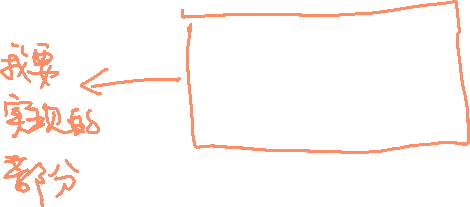 我要
实现的
部分